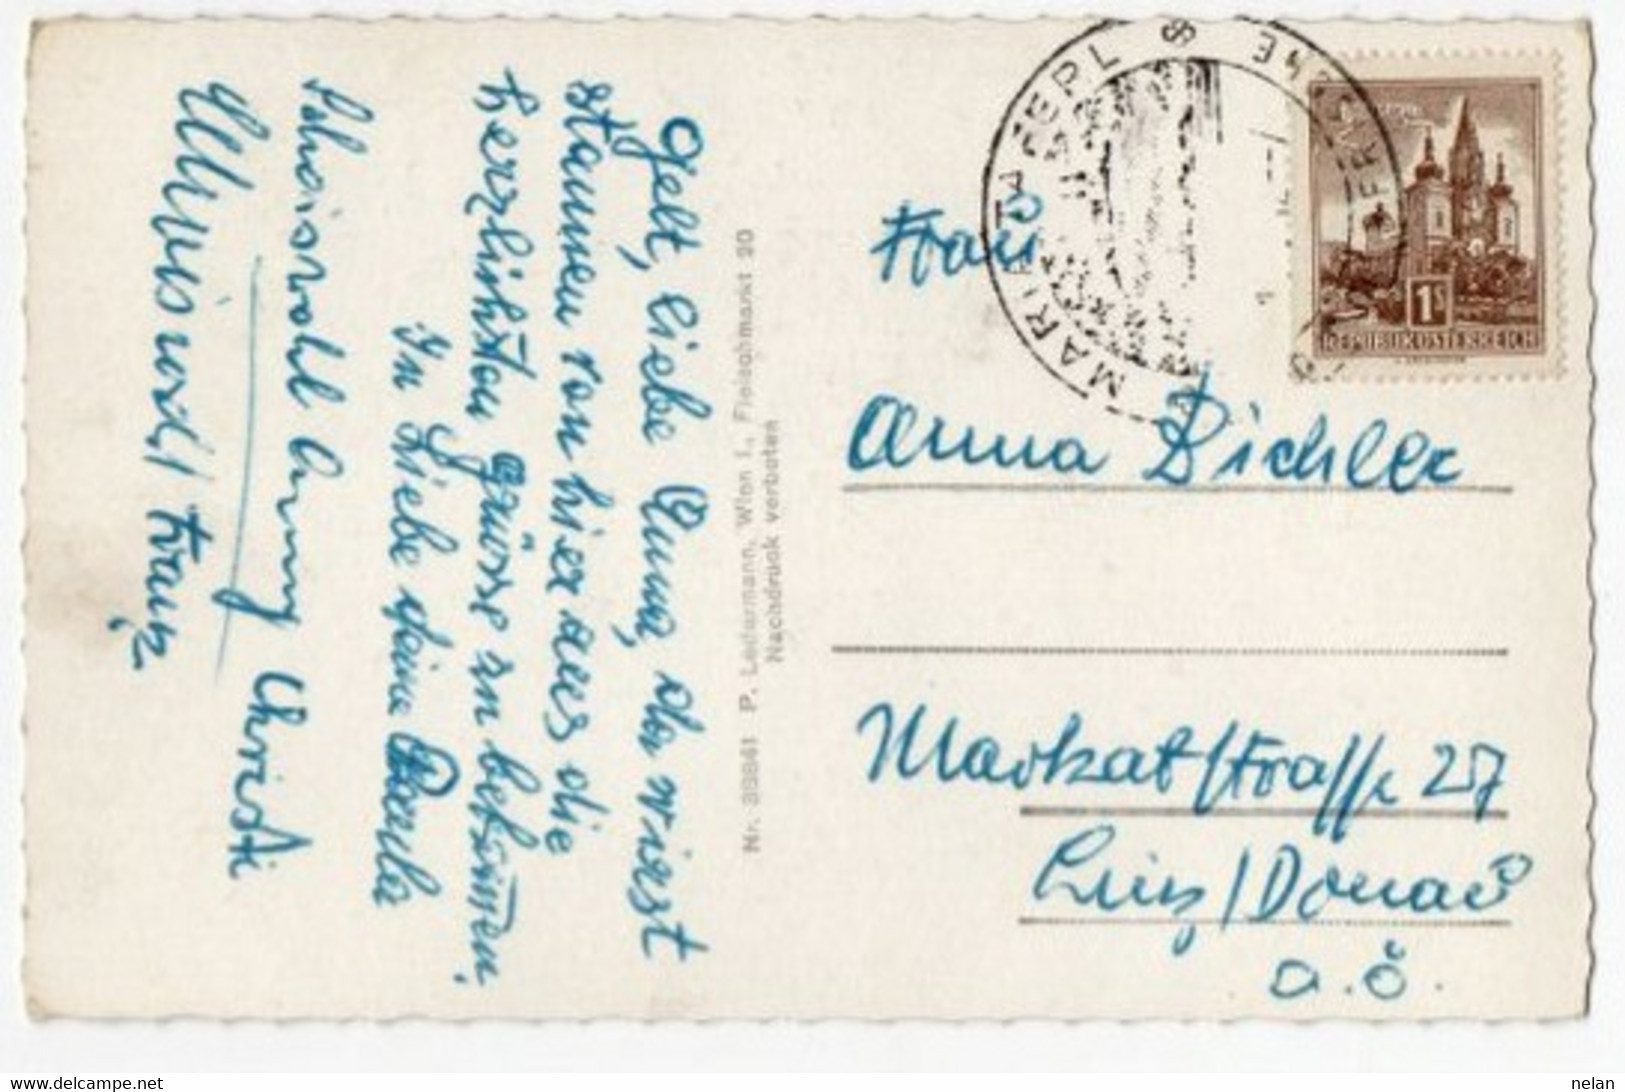 Gelt, liebe Anna, da wirst
staunen von hier aus die
herzlichsten grüsse zu bekommen.
In Liebe deine Paula
Anny Christi
Franz
Nr. 35841 P. Ledermann, Wien I., Fleischmarkt 20
Nachdruck verboten
MARIA TAFERL
1S
REPUBLIK ÖSTERREICH
Frau
Anna Bichler
Markatstrasse 27
Linz/Donau
O.Ö.
www.delcampe.net
nelan